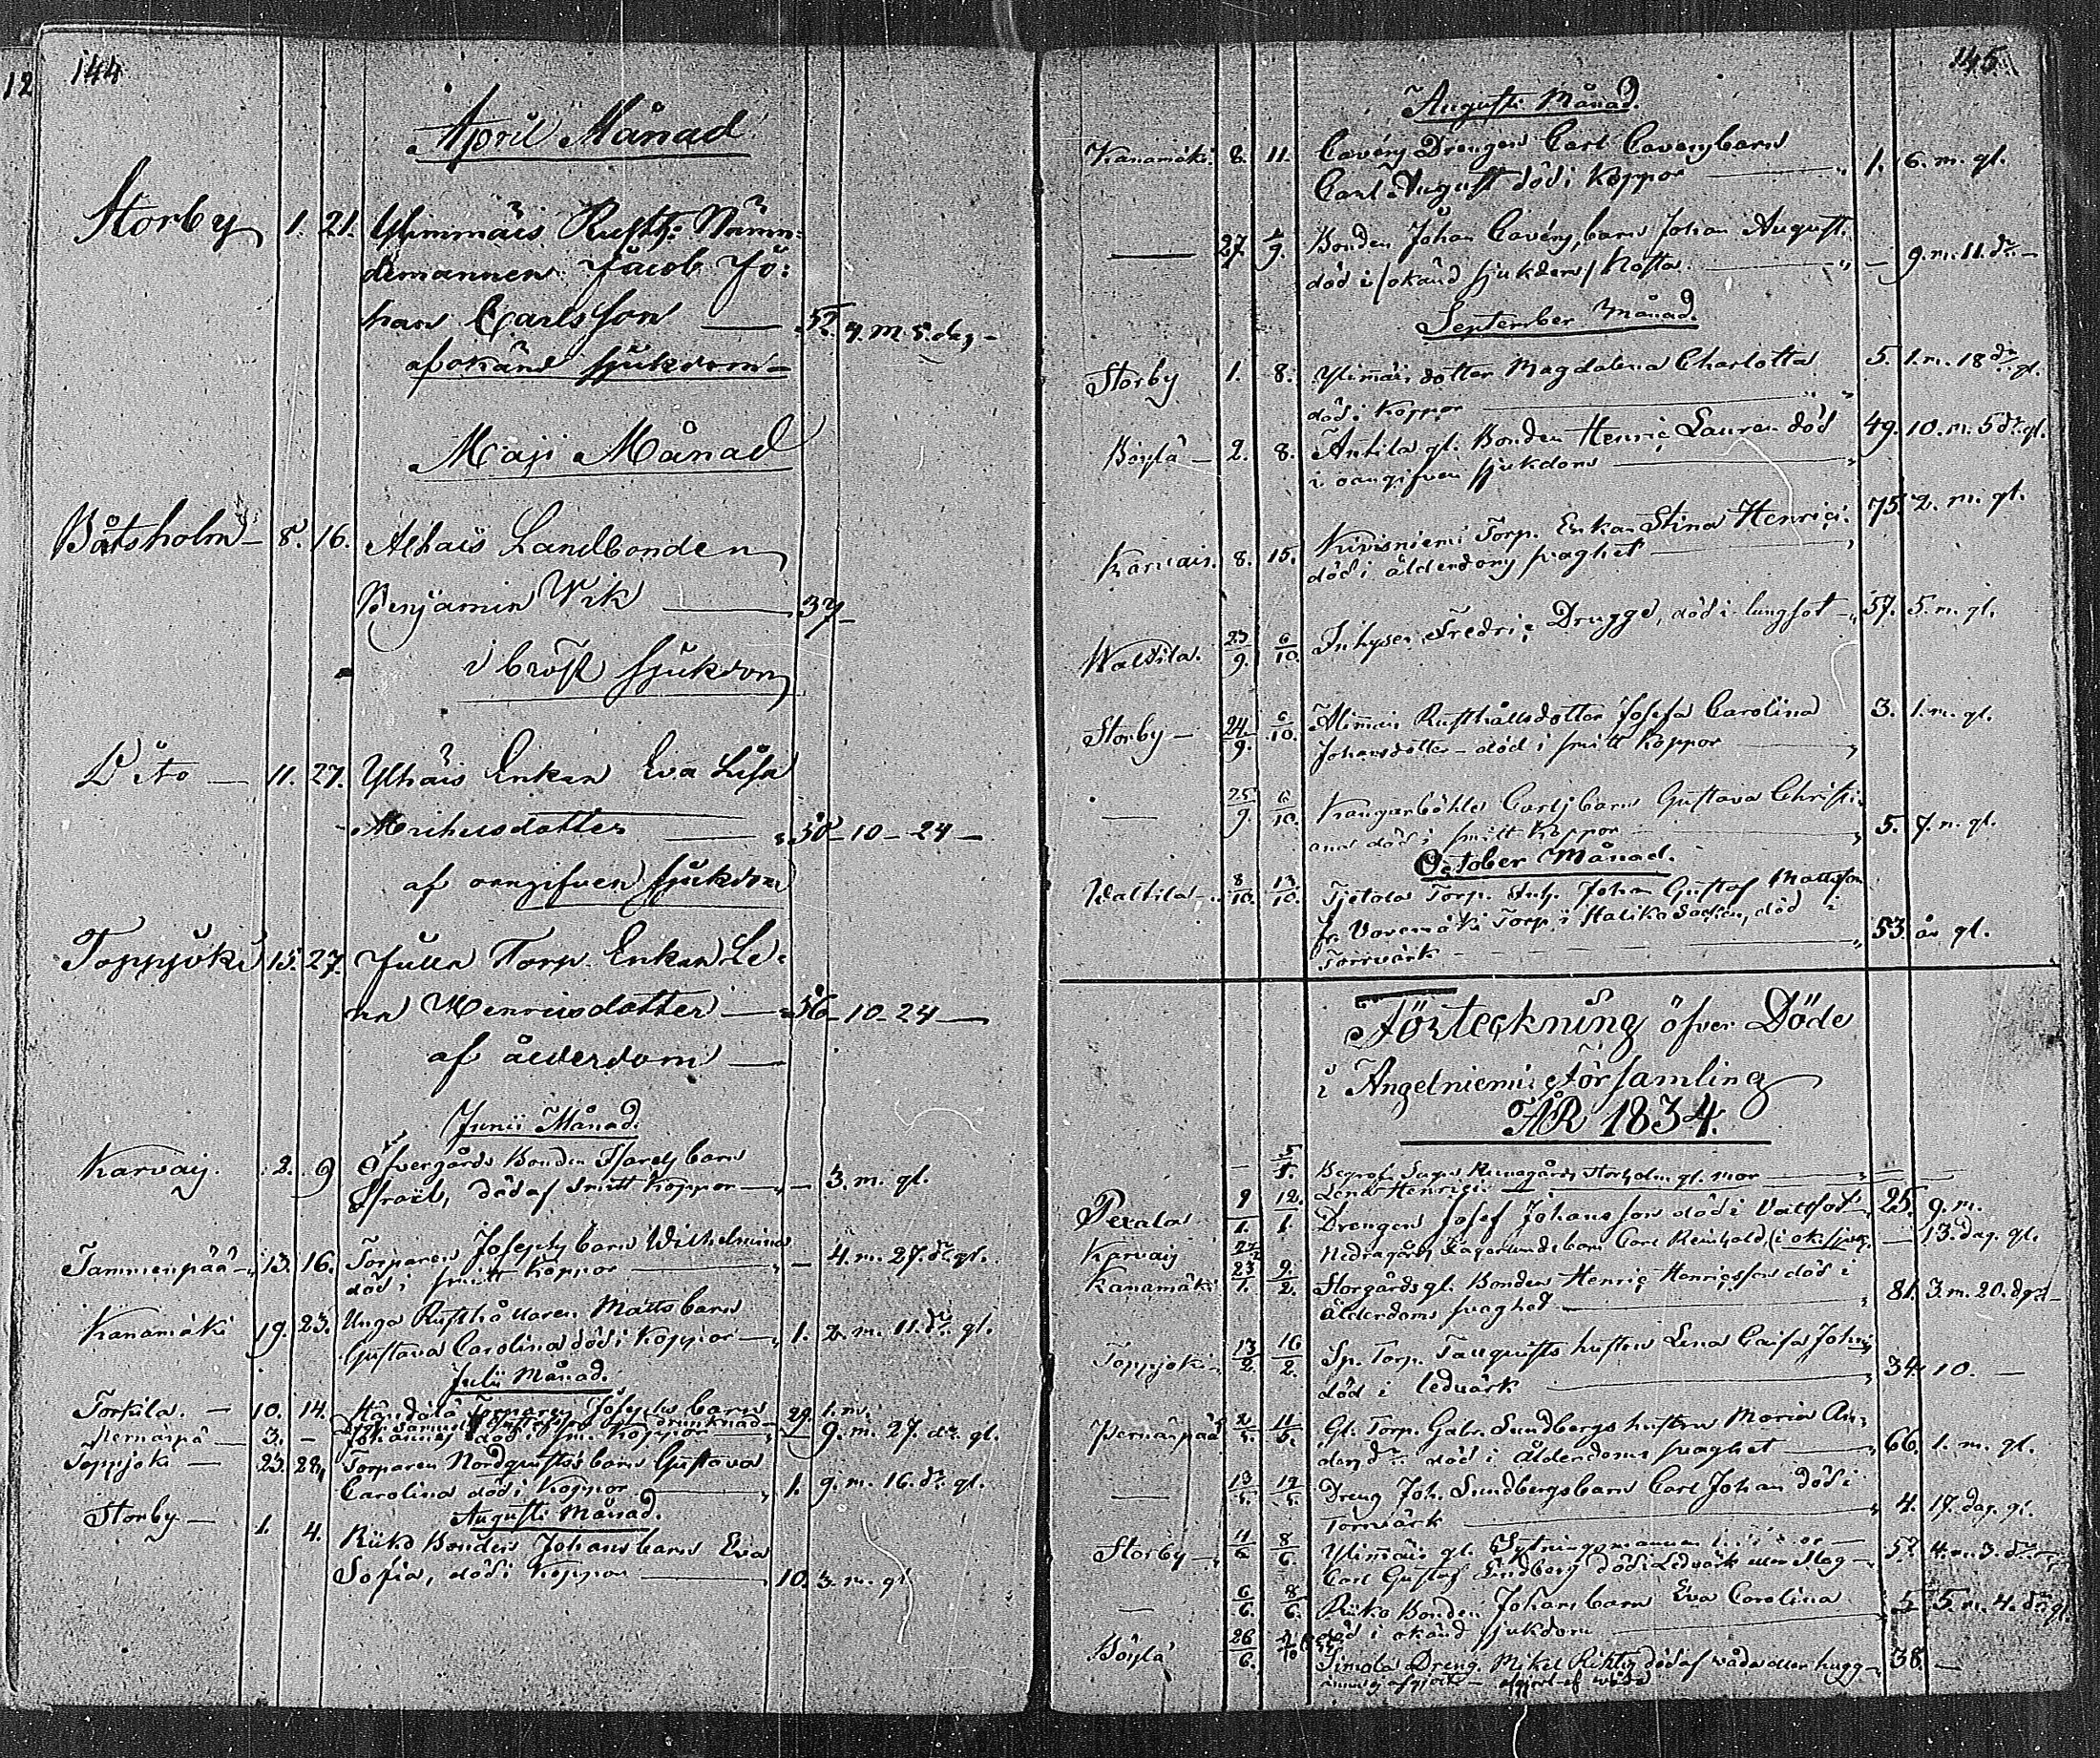 12
144
April Månad
Storby 1. 21. Ylimmäis Rusth: Nämn-
demannen Jacob Jo:
han Carlsson — 57. 4. m. 5. dag -
af okänd sjukdom -
Maji Månad
Båtsholm - 8. 16. Alhais Landbonden
Benjamin Wik — 37 -
i bröst sjukdom
Dito — 11. 27. Ylhäis Enkan Eva Lisa
Mrihusdotter — 58 - 10 - 24 -
af oangifven sjukdom
Toppjoki 15. 27. Julla Torp. Enkan Le-
na Henricsdotter — 56 - 10 - 24 -
af ålderdom —
Junii Månad.
Karvais. 2. 9 Öfvergårds Bonden barn
Israel, död af smitt Koppor — 3. m. gl.
Tammenpää — 13. 16. Torparen Josephs barn Wilhelmina
död i smitt Koppor — 4. m. 27. dr. gl.
Kanamäki 19. 23. Unga Rusthållaren Matts barn
Gustava Carolina död i Koppor — 1. 2. m. 11. dr. gl.
Julii Månad.
Torkila. — 10. 14. Torparen Josephs barn 29. 1. m.
Pernäspä — 3. — Johannes död i sm. Koppor — 9. m. 27. dr. gl.
Toppjoki — 23. 28. Torparen Nordqvists barn Gustava
Carolina död i Koppor — 1. 9. m. 16. dr. gl.
Augusti Månad.
Storby — 1. 4. Riiko Bonden Johans barn Eva
Sofia, död i Koppor — 10. 3. m. gl.
145.
Augusti Månad.
Kanamäki 8. 11. Cavéns Drengen Carl Cavens barn
Carl August död i Koppor — 1. 6. m. gl.
— 27. 1/9. Bonden Johan Cavéns barn Johan August.
död i /okänd sjukdom/ Hosta. — 9. m. 11. dr. -
September Månad.
Storby 1. 8. Ylimäis dotter Magdalena Charlotta 5. 1. m. 18 dr. gl.
död i Koppor —
Böylä — 2. 8. Antila gl. Bonden Henric Lauren död 49. 10. m. 5 dr. gl.
i oangifven sjukdom —
Karvais. 8. 15. Kivisniemi Torp. Enkan Stina Henrici. 75. 2. m. gl.
död i ålderdoms svaghet —
Waltila. 23/9. 6/10. Inhyses Fredric Drugge, död i lungsot — 57. 5. m. gl.
Storby — 24/9. 6/10. Alimais Rusthållsdotter Josefa Carolina 3. 1. m. gl.
Johansdotter — död i smitt Koppor —
— 25/9. 6/10. Kangarböhle Carls barn Gustava Christi-
ana död i smitt Koppor — 5. 7. m. gl.
October Månad.
Waltila. 8/10. 13/10. Tjetola Torp. Inh. Johan Gustaf Mattsson
fr. Torp i Haliko Socken, död i
Torrvärk — 53. år gl.
Förteckning öfver Döde
i Angelniemi Församling
ÅR 1834.
— 5/1. Begrof. Storholm gl. mor —
Lena Henrici —
Pexala 9/1. 12/1. Drengen Josef Johansson död i Vattsot — 25. 9. m.
Karvais Nedragårds Fagerlunds barn Carl Reinhold, (i ok. sjuk. — 13. dag. gl.
Kanamäki 23/1. 9/2. Storgårds gl. Bonden Henric Henricsson död i
Ålderdoms svaghed — 81. 3. m. 20. dgr -
Toppjoki — 13/2. 16/2. Sp. Torp. Tanqvists hustru Lena Caisa Johns
död i ledvärk — 34. 10. —
Pernäspää Gl. Torp. Gabr. Sundbergs hustru Maria An-
död i Ålderdoms svaghet — 66. 1. m. gl.
— Dreng Joh. Sundbergs barn Carl Johan död i
Torrvärk — 4. 17. dag. gl.
Storby — 4/6. 8/6. Ylimäis gl. Sytningsmannen
Carl Gustaf Lindberg död i Ledvärk eller Slag — 57. 4. m. 3. dr. —
— 6/6. 8/6. Riiko Bonden Johans barn Eva Carolina 5 5. m. 4. dr. gl.
död i okänd sjukdom —
Böylä 26/6. Simola Dreng. Mikel död af våda eller hugg — 38. —